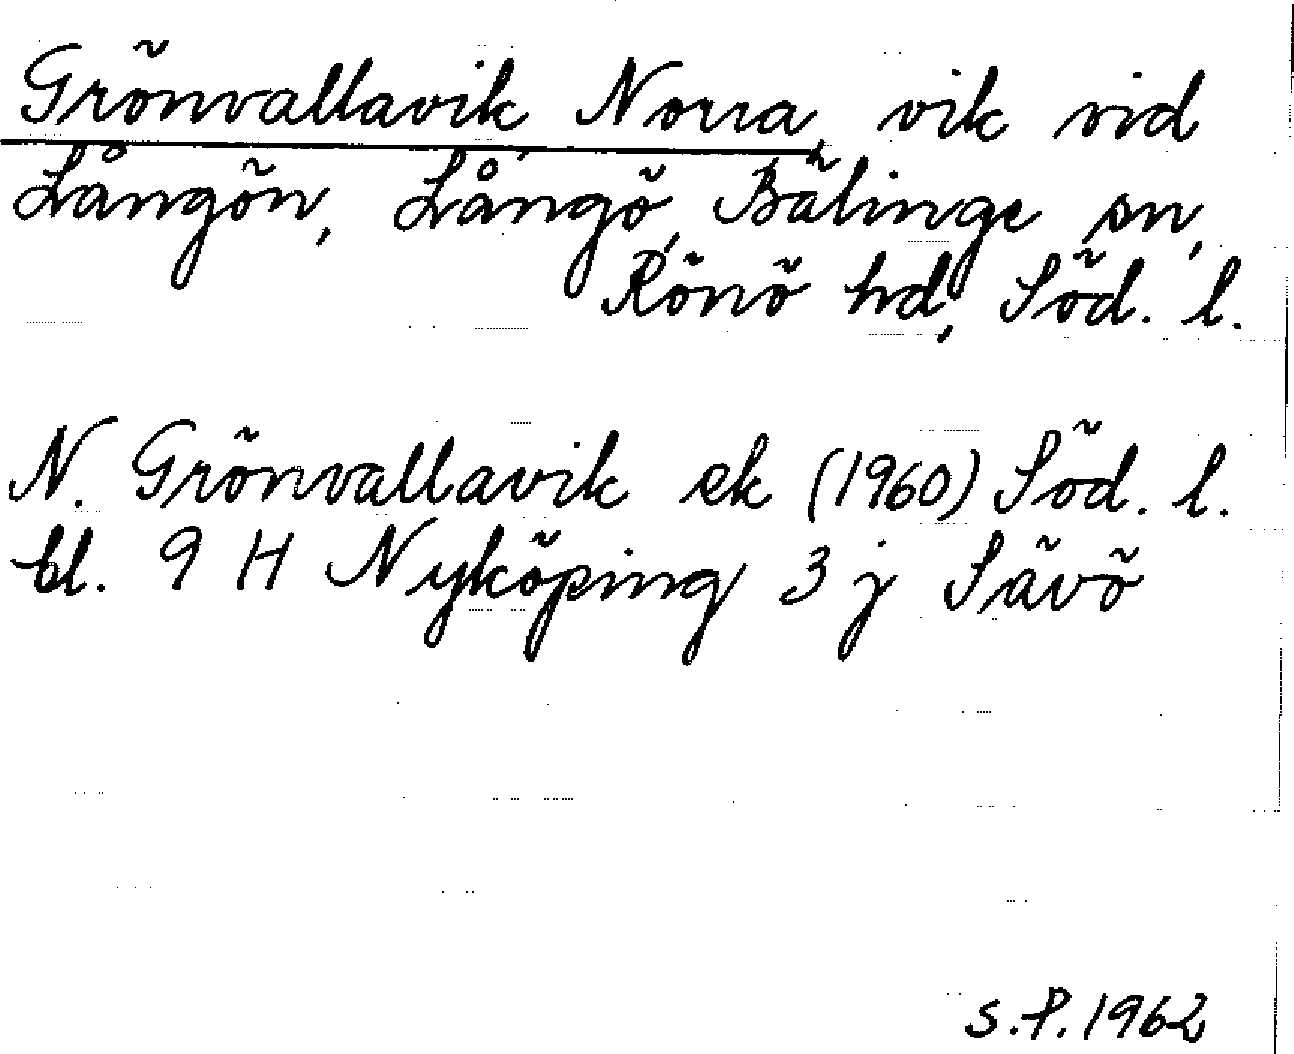 Grönvallavik Norra, vik vid
Långön, Långö, Bälinge sn,
Rönö hd, Söd. l.
N. Grönvallavik ek (1960) Söd. l.
bl. 9 H Nyköping 3 j Sävö
S.P. 1962